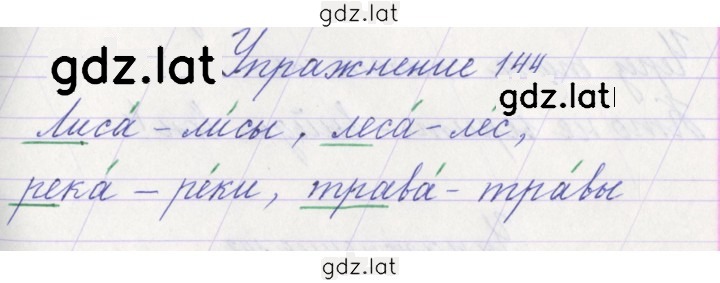 gdz.lat
gdz.lat Упражнение 144
gdz.lat
Лиса́ – ли́сы, леса́ – ле́с,
река́ – ре́ки, трава́ – тра́вы
gdz.lat